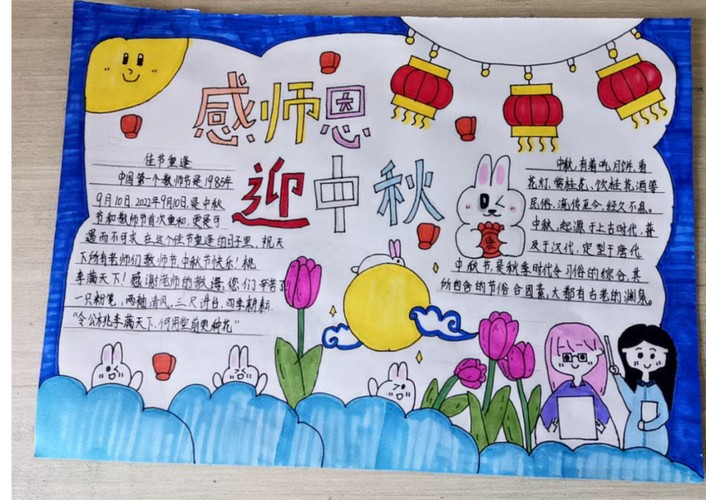 感师恩
迎中秋
佳节重逢
中国第一个教师节是1985年
9月10日,2022年9月10日,是中秋
节和教师节首次重和,更是可
遇而不可求,在这个佳节重逢的日子里,祝天
下所有老师们教师节,中秋节快乐!桃
李满天下!感谢老师的教诲,您们辛苦了
一只粉笔,两袖清风,三尺讲台,四季耕耘.
"令公桃李满天下,何用堂前更种花"
中秋,有着吃月饼,看
花灯,赏桂花、饮桂花酒等
民俗,流传至今,经久不息。
中秋,起源于上古时代,普
及于汉代,定型于唐代
中秋节,是秋季时令习俗的综合,其
所包含的节俗合因素,大都有古老的渊泉。